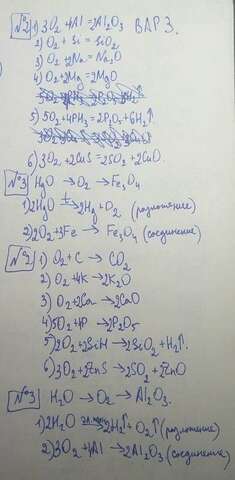 №2 1) 3O₂ + 4Al = 2Al₂O₃ ВАР 3.
2) O₂ + Si = SiO₂
3) O₂ + 2Na = Na₂O
4) O₂ + 2Mg = 2MgO
5) 5O₂ + 4PH₃ = 2P₂O₅ + 6H₂↑
6) 3O₂ + 2CuS = 2SO₂ + 2CuO.
№3 HgO → O₂ → Fe₃O₄
1) 2HgO t→ 2Hg + O₂ (разложение)
2) 2O₂ + 3Fe → Fe₃O₄ (соединение)
№2 1) O₂ + C → CO₂
2) O₂ + 4K → 2K₂O
3) O₂ + 2Ca → 2CaO
4) 5O₂ + 4P → 2P₂O₅
5) 2O₂ + 2SiH → 2SiO₂ + H₂↑.
6) 3O₂ + 2ZnS → 2SO₂ + 2ZnO
№3 H₂O → O₂ → Al₂O₃.
1) 2H₂O эл. ток→ 2H₂↑ + O₂↑ (разложение)
2) 3O₂ + 4Al → 2Al₂O₃ (соединение)